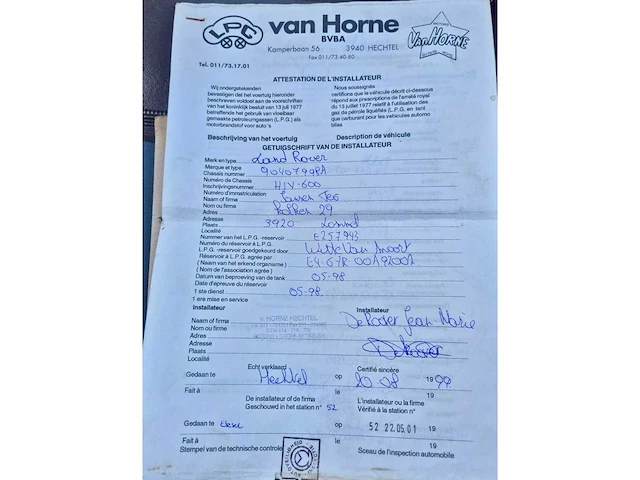 LPG
van Horne
BVBA
Kamperbaan 56 3940 HECHTEL
Fax 011/73 40 80
Tel. 011/73.17.01
VAN HORNE
ATTESTATION DE L'INSTALLATEUR
Wij ondergetekenden
bevestigen dat het voertuig hieronder
beschreven voldoet aan de voorschriften
van het koninklijk besluit van 13 juli 1977
betreffende het gebruik van vloeibaar
gemaakte petroleumgassen (L.P.G.) als
motorbrandstof voor auto's
Nous soussignés
certifions que le véhicule décrit ci-dessous
répond aux prescriptions de l'arrêté royal
du 13 juillet 1977 relatif à l'utilisation des
gaz de pétrole liquéfiés (L.P.G.) en tant
que carburant pour les véhicules automo
biles
Beschrijving van het voertuig Description de véhicule
GETUIGSCHRIFT VAN DE INSTALLATEUR
Merk en type Land Rover
Marque et type
Chassis nummer
Numéro de Chassis
Inschrijvingsnummer HIV-600
Numéro d'immatriculation
Naam of firma
Nom ou firme
Adres 29
Adresse
Plaats 3920 Lommel
Localité
Nummer van het L.P.G.-reservoir E257943
Numéro du réservoir à L.P.G.
L.P.G.-reservoir goedgekeurd door
Réservoir à L.P.G. agrée par
(Naam van het erkend organisme) E4-67R 00192002
(Nom de l'association agrée)
Datum van beproeving van de tank 05-98
Date d'épreuve du réservoir
1ste dienst 05-98
1 ere mise en service
Installateur Installateur
V. HORNE HECHTEL
Naam of firma Jean Marie
Nom ou firme
Adres
Adresse
Plaats
Localité
Echt verklaard Certifié sincère
Gedaan te Hechtel op 20 08 1999
Fait à le
De installateur of de firma L'installateur ou la firme
Geschouwd in het station n° 52 Vérifié à la station n°
Gedaan te op 52 22.05.01 19
Fait à le 19
Stempel van de technische controle Sceau de l'inspection automobile